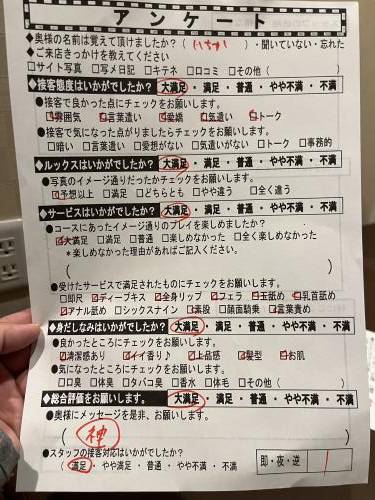 アンケート
◆奥様の名前は覚えて頂けましたか?( )・聞いていない・忘れた
◆ご来店きっかけを教えてください
□サイト写真 □写メ日記 □キテネ □口コミ □その他( )
◆接客態度はいかがでしたか? 大満足・満足・普通・やや不満・不満
●接客で良かった点にチェックをお願いします。
□雰囲気 □言葉遣い □愛嬌 □気遣い □トーク
●接客で気になった点がありましたらチェックをお願します。
□暗い □言葉遣い □愛想がない □気遣いがない □トーク □事務的
◆ルックスはいかがでしたか? 大満足・満足・普通・やや不満・不満
●写真のイメージ通りだったかチェックをお願します。
□予想以上 □満足 □どちらとも □やや違う □全く違う
◆サービスはいかがでしたか? 大満足・満足・普通・やや不満・不満
●コースにあったイメージ通りのプレイを楽しめましたか?
□大満足 □満足 □普通 □楽しめなかった □全く楽しめなかった
*楽しめなかった理由があればご記入ください。
( )
●受けたサービスで満足されたものにチェックをお願します。
□即尺 □ディープキス □全身リップ □フェラ □玉舐め □乳首舐め
□アナル舐め □シックスナイン □素股 □顔面騎乗 □言葉責め
◆身だしなみはいかがでしたか? 大満足・満足・普通・やや不満・不満
●良かったところにチェックをお願いします。
□清潔感あり □イイ香り♪ □上品感 □髪型 □お肌
●気になったところにチェックをお願いします。
□口臭 □体臭 □タバコ臭 □香水 □体毛 □その他( )
◆総合評価をお願いします。 大満足・満足・普通・やや不満・不満
●奥様にメッセージを是非、お願します。
( 神 )
●スタッフの接客対応はいかがでしたか?
(満足・やや満足・普通・やや不満・不満
即・夜・逆